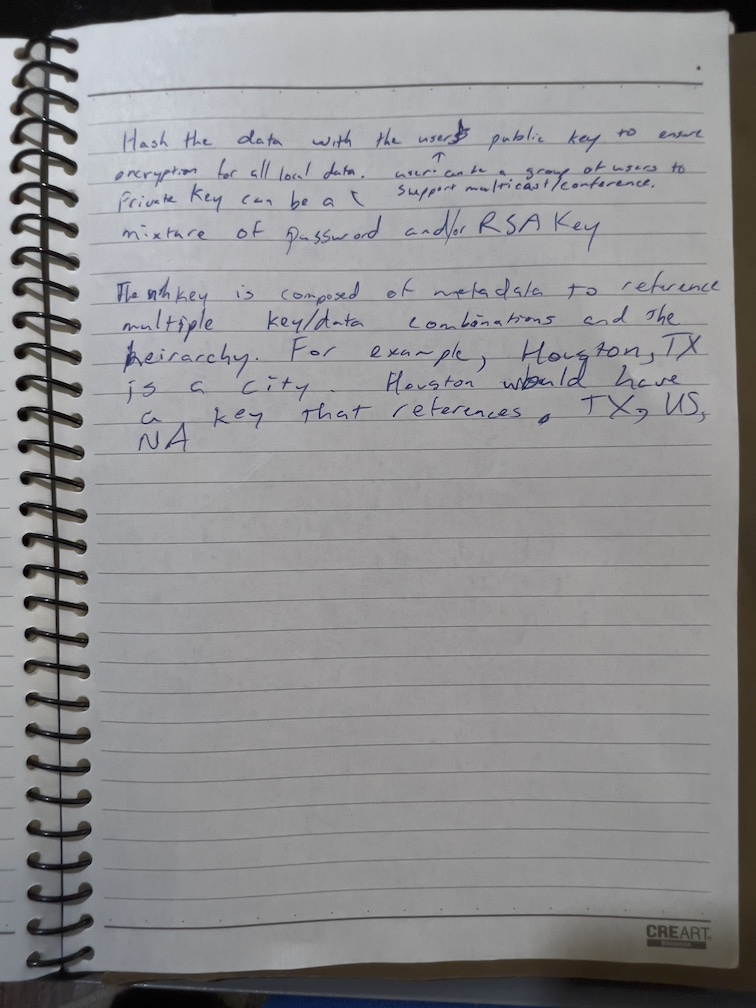 Hash the data with the users public key to ensure
encryption for all local data. user can be a group of users to
support multicast/conference.
Private Key can be a
mixture of password and/or RSA Key
The key is composed of metadata to reference
multiple key/data combinations and the
heirarchy. For example, Houston, TX
is a city. Houston would have
a key that references, TX, US,
NA
CREART